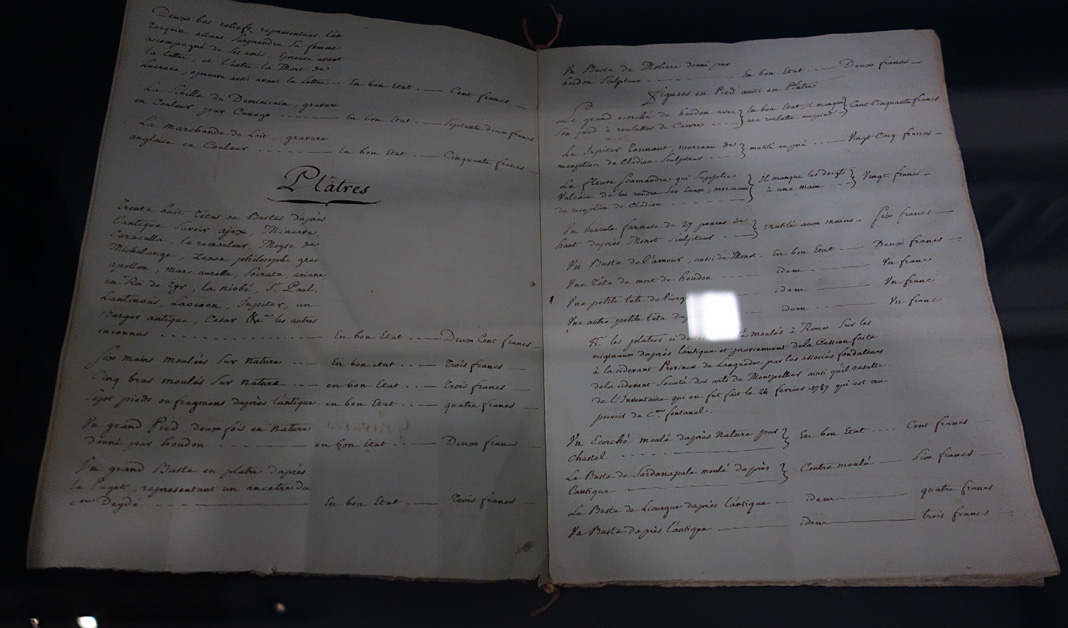 Deux bas reliefs representans l'un
Tarquin allant surprendre sa femme
accompagné de ses amis, épreuve avant
la lettre, et l'autre la Mort de
Lucrece, épreuve aussi avant la Lettre .. En bon Etat — Cent francs —
La Sibille du Dominicain, gravure
en Couleur par Cunego — en bon Etat — Soixante deux francs
La marchande de Lait, gravure
anglaise en Couleur — En bon Etat — Cinquante francs —
Plâtres
Trente huit Têtes ou Bustes d'après
l'antique savoir ajax, Minerve,
Caracalla, le remouleur, Moyse de
Michelange, Zenon philosophe grec
apollon, marc aurelle, Socrate, ariane
un Roi de Tyr, la niobé, St. Paul,
Lantinous, Laocoon, Jupiter, un
Berger antique, Cesar &a les autres
inconnus — En bon Etat — Deux Cent francs —
Six mains moulées sur nature — En bon Etat — Trois francs —
Cinq bras moulés sur nature — en bon Etat — Trois francs —
Sept pieds ou fragmens d'après l'antique en bon Etat — quatre francs —
Un grand Pied, deux fois en nature
donné par houdon — en bon Etat — Deux francs
Un grand Buste en platre d'après
le Puget, representant un ancetre du
Cen Deydé — En bon Etat — Trois francs —
Un Buste de Moliere donné par
houdon Sculpteur — En bon Etat — Deux francs —
Figures en Pied aussi en Plâtre
Le grand ecorché de houdon avec } En bon Etat, il manque } Cent Cinquante francs
son pied à roulettes de Cuivre } une roulette au pied
Le Jupiter Tonnant, morceau de } mutilé au pié — Vingt Cinq francs —
reception de Clodion Sculpteur
Le fleuve Scamandre qui supplie } Il manque les doigts } Vingt francs —
Vulcain de lui rendre ses Eaux, morceau } à une main
de reception de Clodion
Un hercule farnese de 27 pouces de } mutilé aux mains — Six francs —
haut d'après Monot sculpteur
Un Buste de l'amour, aussi de Monot — En bon Etat — Deux francs —
Une Tête de mort de houdon — idem — Un franc
Une petite tête — idem — Un franc
Une autre petite tête — idem — Un franc
Na. les platres moulés à Rome Sur les
originaux d'après l'antique et proviennent de la Cession faite
à la cidevant Province de Languedoc par les associés fondateurs
de la cidevant Societé des arts de Montpellier ainsi qu'il resulte
de l'Inventaire qui en fut fait le 26 fevrier 1787 qui est au
pouvoir du Cen. fontanel.
Un Ecorché moulé d'après nature par } En bon Etat — Cent francs —
Chastel
Le Buste de Sardanapale moulé d'après } Contre moulé — Six francs —
l'antique
Le Buste de Licurgue d'après l'antique — idem — quatre francs
Un Buste d'après l'antique — idem — trois francs